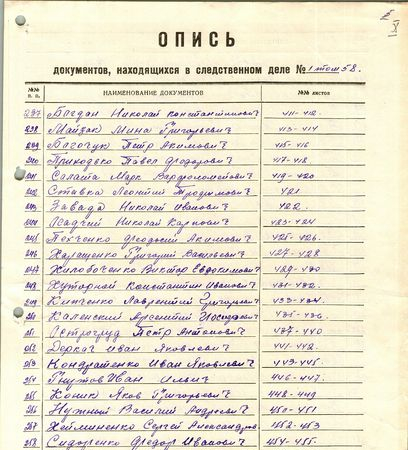 ОПИСЬ
документов, находящихся в следственном деле № 1 том 58.
№№ п. п. НАИМЕНОВАНИЕ ДОКУМЕНТОВ №№ листов
237 Богдан Николай Константинович 411-412.
238 Майзак Мина Григорьевич 413-414
239 Петр Акимович 415-416
240 Приходько Павел Федорович 417-418
241 Салата Марк Варфоломеевич 419-420
242 Ставка Леонтий Трофимович 421
243 Завада Николай Иванович 422.
244 Осадчий Николай Карпович 423-424
245 Феодосий Акимович 425-426.
246 Харащенко Григорий Васильевич 427-428
247 Виктор Евдокимович 429-430
248 Хуторной Константин Иванович 431-432.
249 Лаврентий Григорьевич 433-434.
250 Каленский Арсентий Иосифович 435-436.
251 Остроград Петр Антонович 437-440
252 Деркач Иван Яковлевич 441-442.
253 Кондратенко Иван Яковлевич 443-445.
254 Гнутов Иван Ильич 446-447.
255 Коник Яков Григорьевич 448-449
256 Нужный Василий Андреевич 450-451
257 Хейлименко Сергей Александров. 452-453
258 Сидоренко Федор Иванович 454-455.